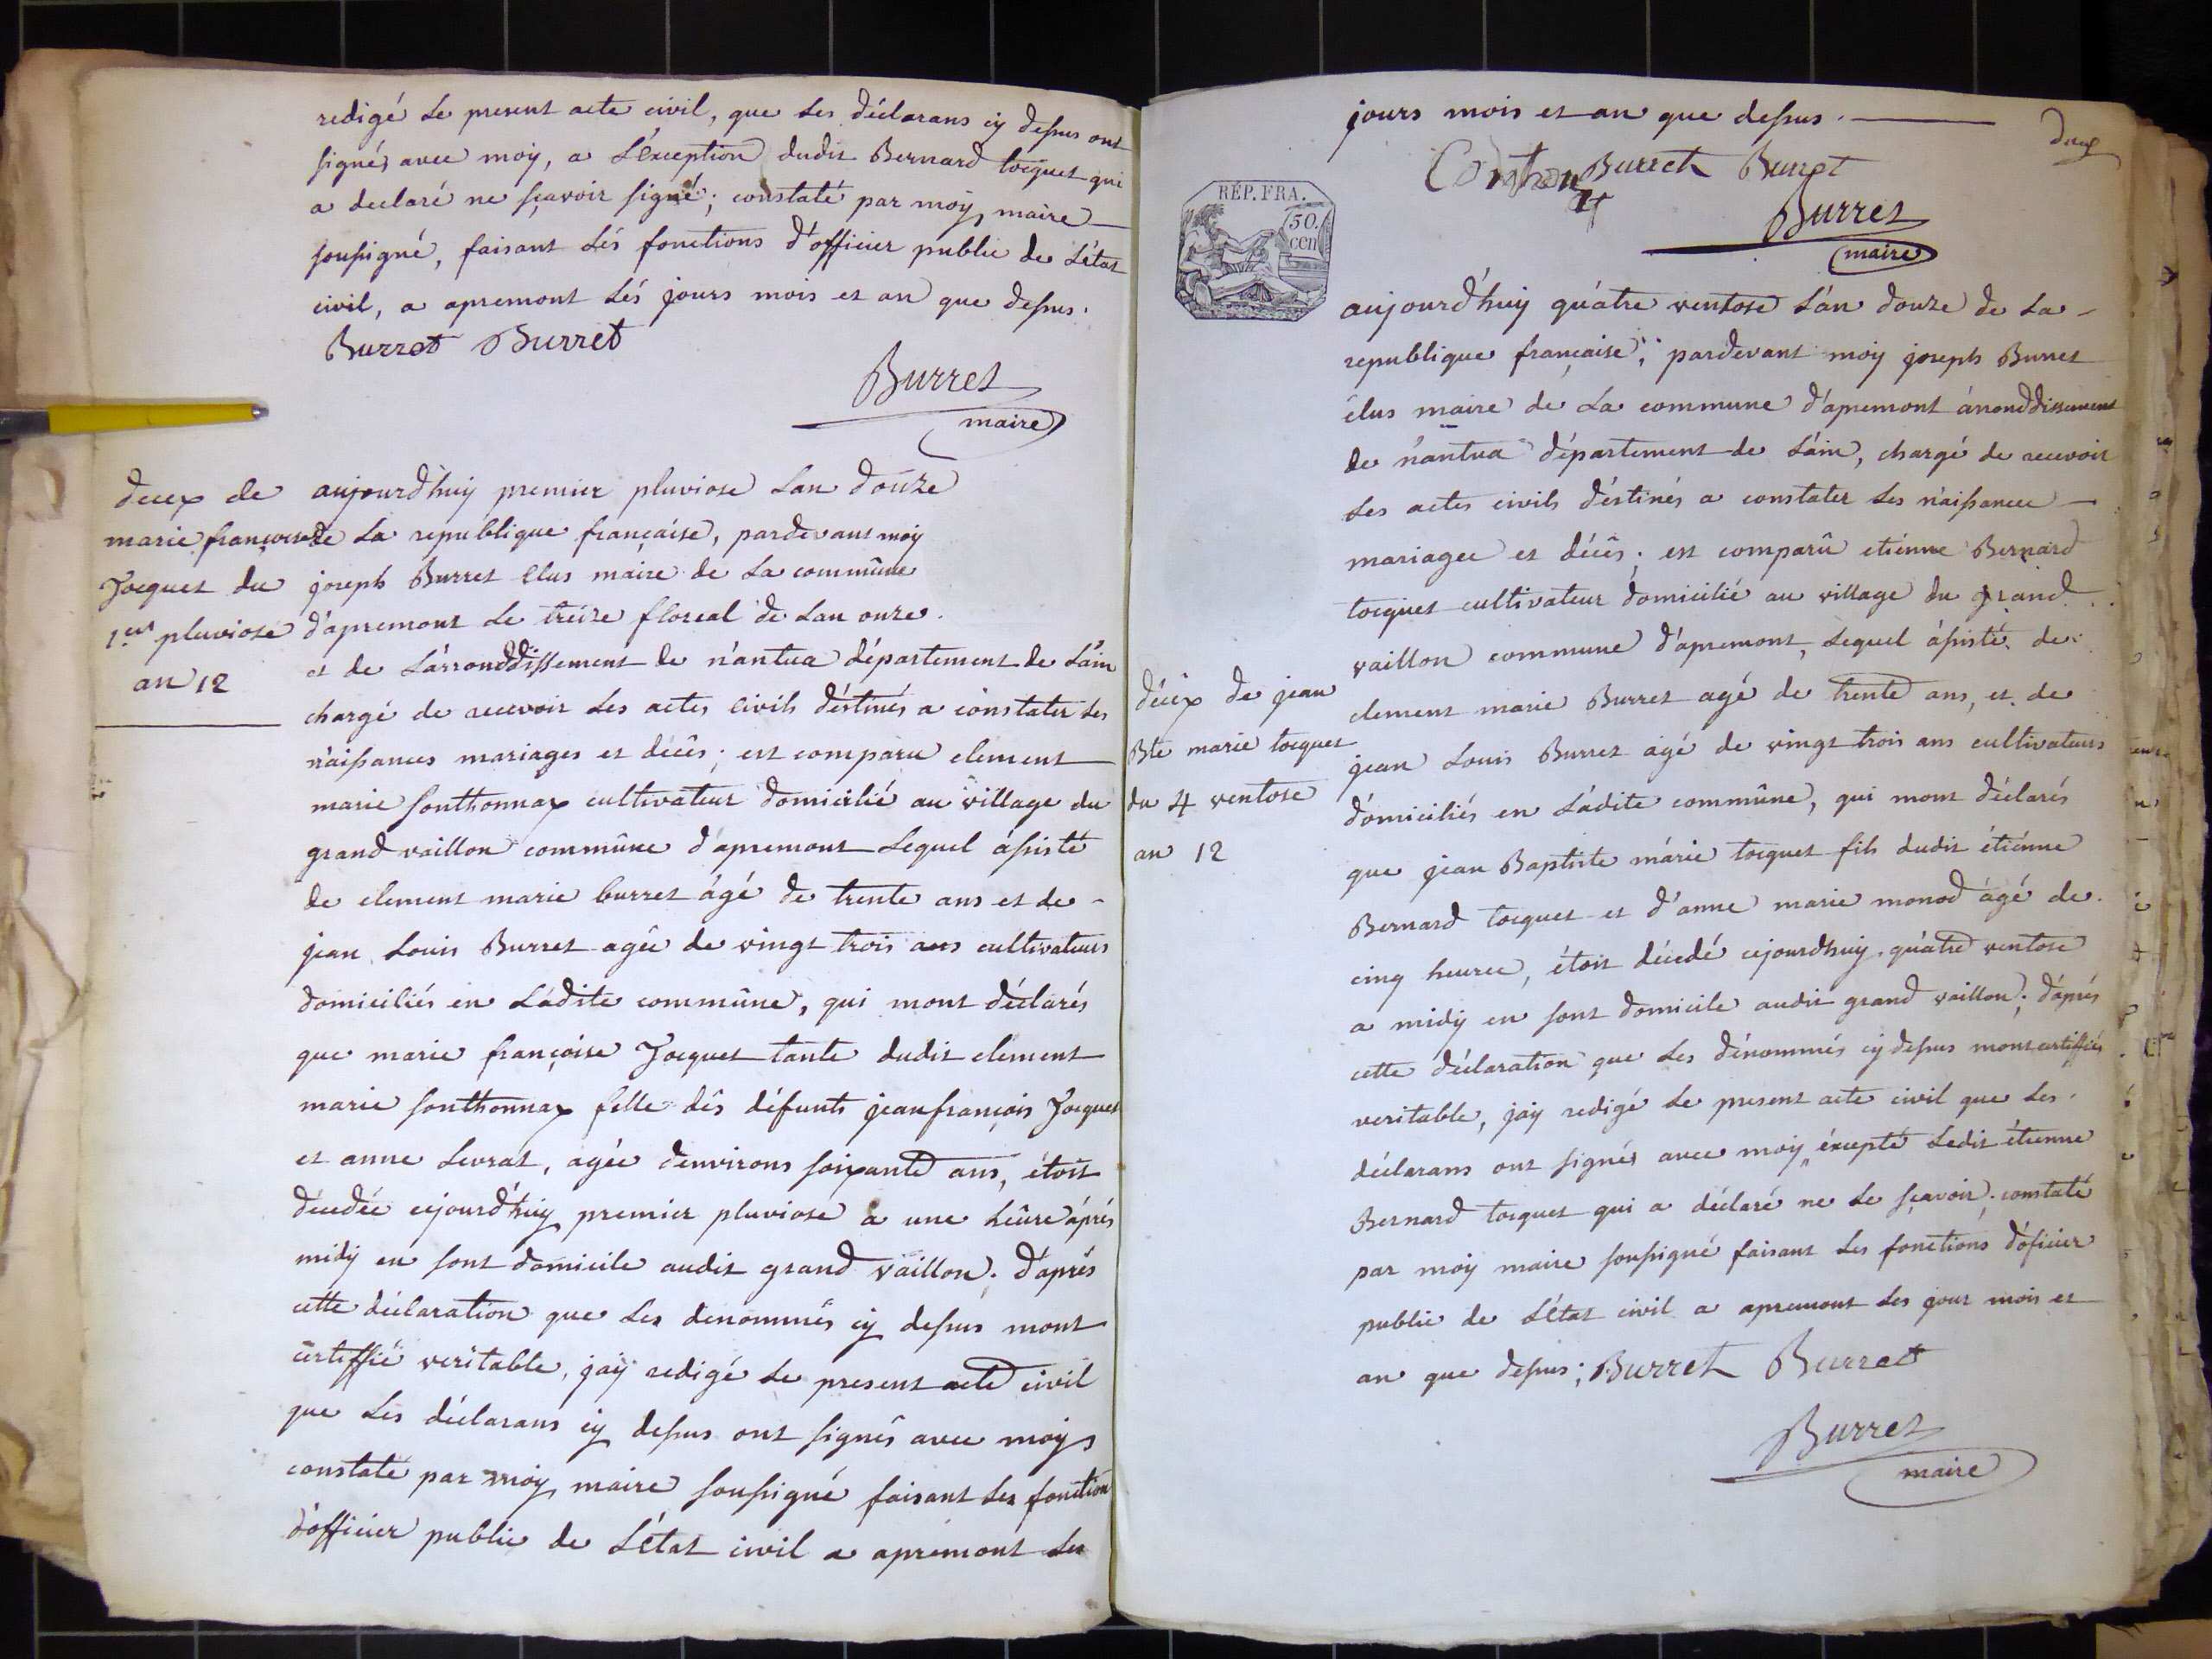 redigé le present acte civil, que les déclarans cy dessus ont
signés avec moy, a L'éxception dudit Bernard tocquet qui
a declaré ne sçavoir signé; constaté par moy, maire
soussigné, faisant Lés fonctions d'officier public de L'état
civil, a apremont Lés jours mois et an que dessus.
Burret Burret
Burret
maire
decex de
marie françoise
Jocquet du
1.er pluviose
an 12
aujourd'huy premier pluviose Lan douze
de La republique française, pardevant moy
joseph Burret Elus maire de La commûne
d'apremont Le treize floreal de Lan onze.
et de L'arronddissement de nantua département de L'ain
chargé de recevoir Les actes civils déstinés a constater Les
naissances mariages et décês; est comparu clement
marie sonthonnax cultivateur domicilié au village du
grand vaillon commûne d'apremont Lequel assisté
de clement marie burret âgé de trente ans et de
jean Louis Burret agée de vingt trois ans cultivateurs
domiciliés en Ladite commûne, qui mont déclarés
que marie françoise Jocquet tante dudit clement
marie sonthonnax fille dês défunts jean françois Jocquet
et anne Levrat, agée denvirons soixante ans, étoit
décedée cejourd'huy premier pluviose a une heûre áprés
midy en sont domicile audit grand vaillon; d'aprés
cette déclaration que Les denommés cy dessus mont
certiffié veritable, jaÿ redigé Le present acte civil
que Les déclarans cy dessus ont signês avec moy,
constaté par moy, maire soussigné faisant Les fonction
d'officier public de L'état civil a apremont Les
jours mois et an que dessus.
deux
Burret Burret
Burret
maire
RÉP. FRA.
50.
cen
décêx de jean
Bte marie tocquet
du 4 ventose
an 12
aujourd'huy quatre ventose L'an douze de La
republique française; pardevant moy joseph Burret
élus maire de La commune d'apremont árronddissement
de nantua département de L'ain, chargé de recevoir
Les actes civils déstinés a constater Les naissance
mariagee et décês; est comparû etiénne Bernard
tocquet cultivateur domicilié au village du grand
vaillon commune d'apremont, Lequel ássisté de
clement marie Burret agé de trente ans, et de
jean Louis Burret agé de vingt trois ans cultivateurs
domiciliés en Ladite commûne, qui mont déclarés
que jean Baptiste márie tocquet fils dudit étiénne
Bernard tocquet et d'anne marie monod âgé de
cinq heuree, étoit décedé cejourdhuy quatre ventose
a midy en sont domicile audit grand vaillon; d'aprés
cette déclaration que Les dénommés cy dessus mont certiffiés
veritable, jaÿ redigé Le present acte civil que Les
déclarans ont signés avec moy, éxcepté Ledit étienne
Bernard tocquet qui a déclaré ne Le sçavoir; constaté
par moy maire soussigné faisant Les fonctions d'oficier
public de L'état civil a apremont Les jour mois et
an que dessus; Burret Burret
Burret
maire